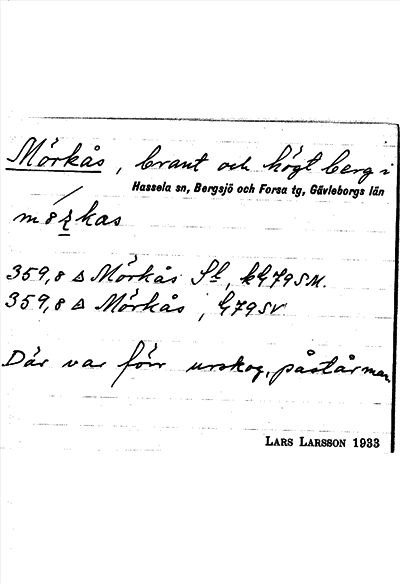 Mörkås, brant och högt berg i
Hassela sn, Bergsjö och Forsa tg, Gävleborgs län
359,8 △ Mörkås St,
359,8 △ Mörkås, G79SV
Där var förr urskog, påstår man.
LARS LARSSON 1933